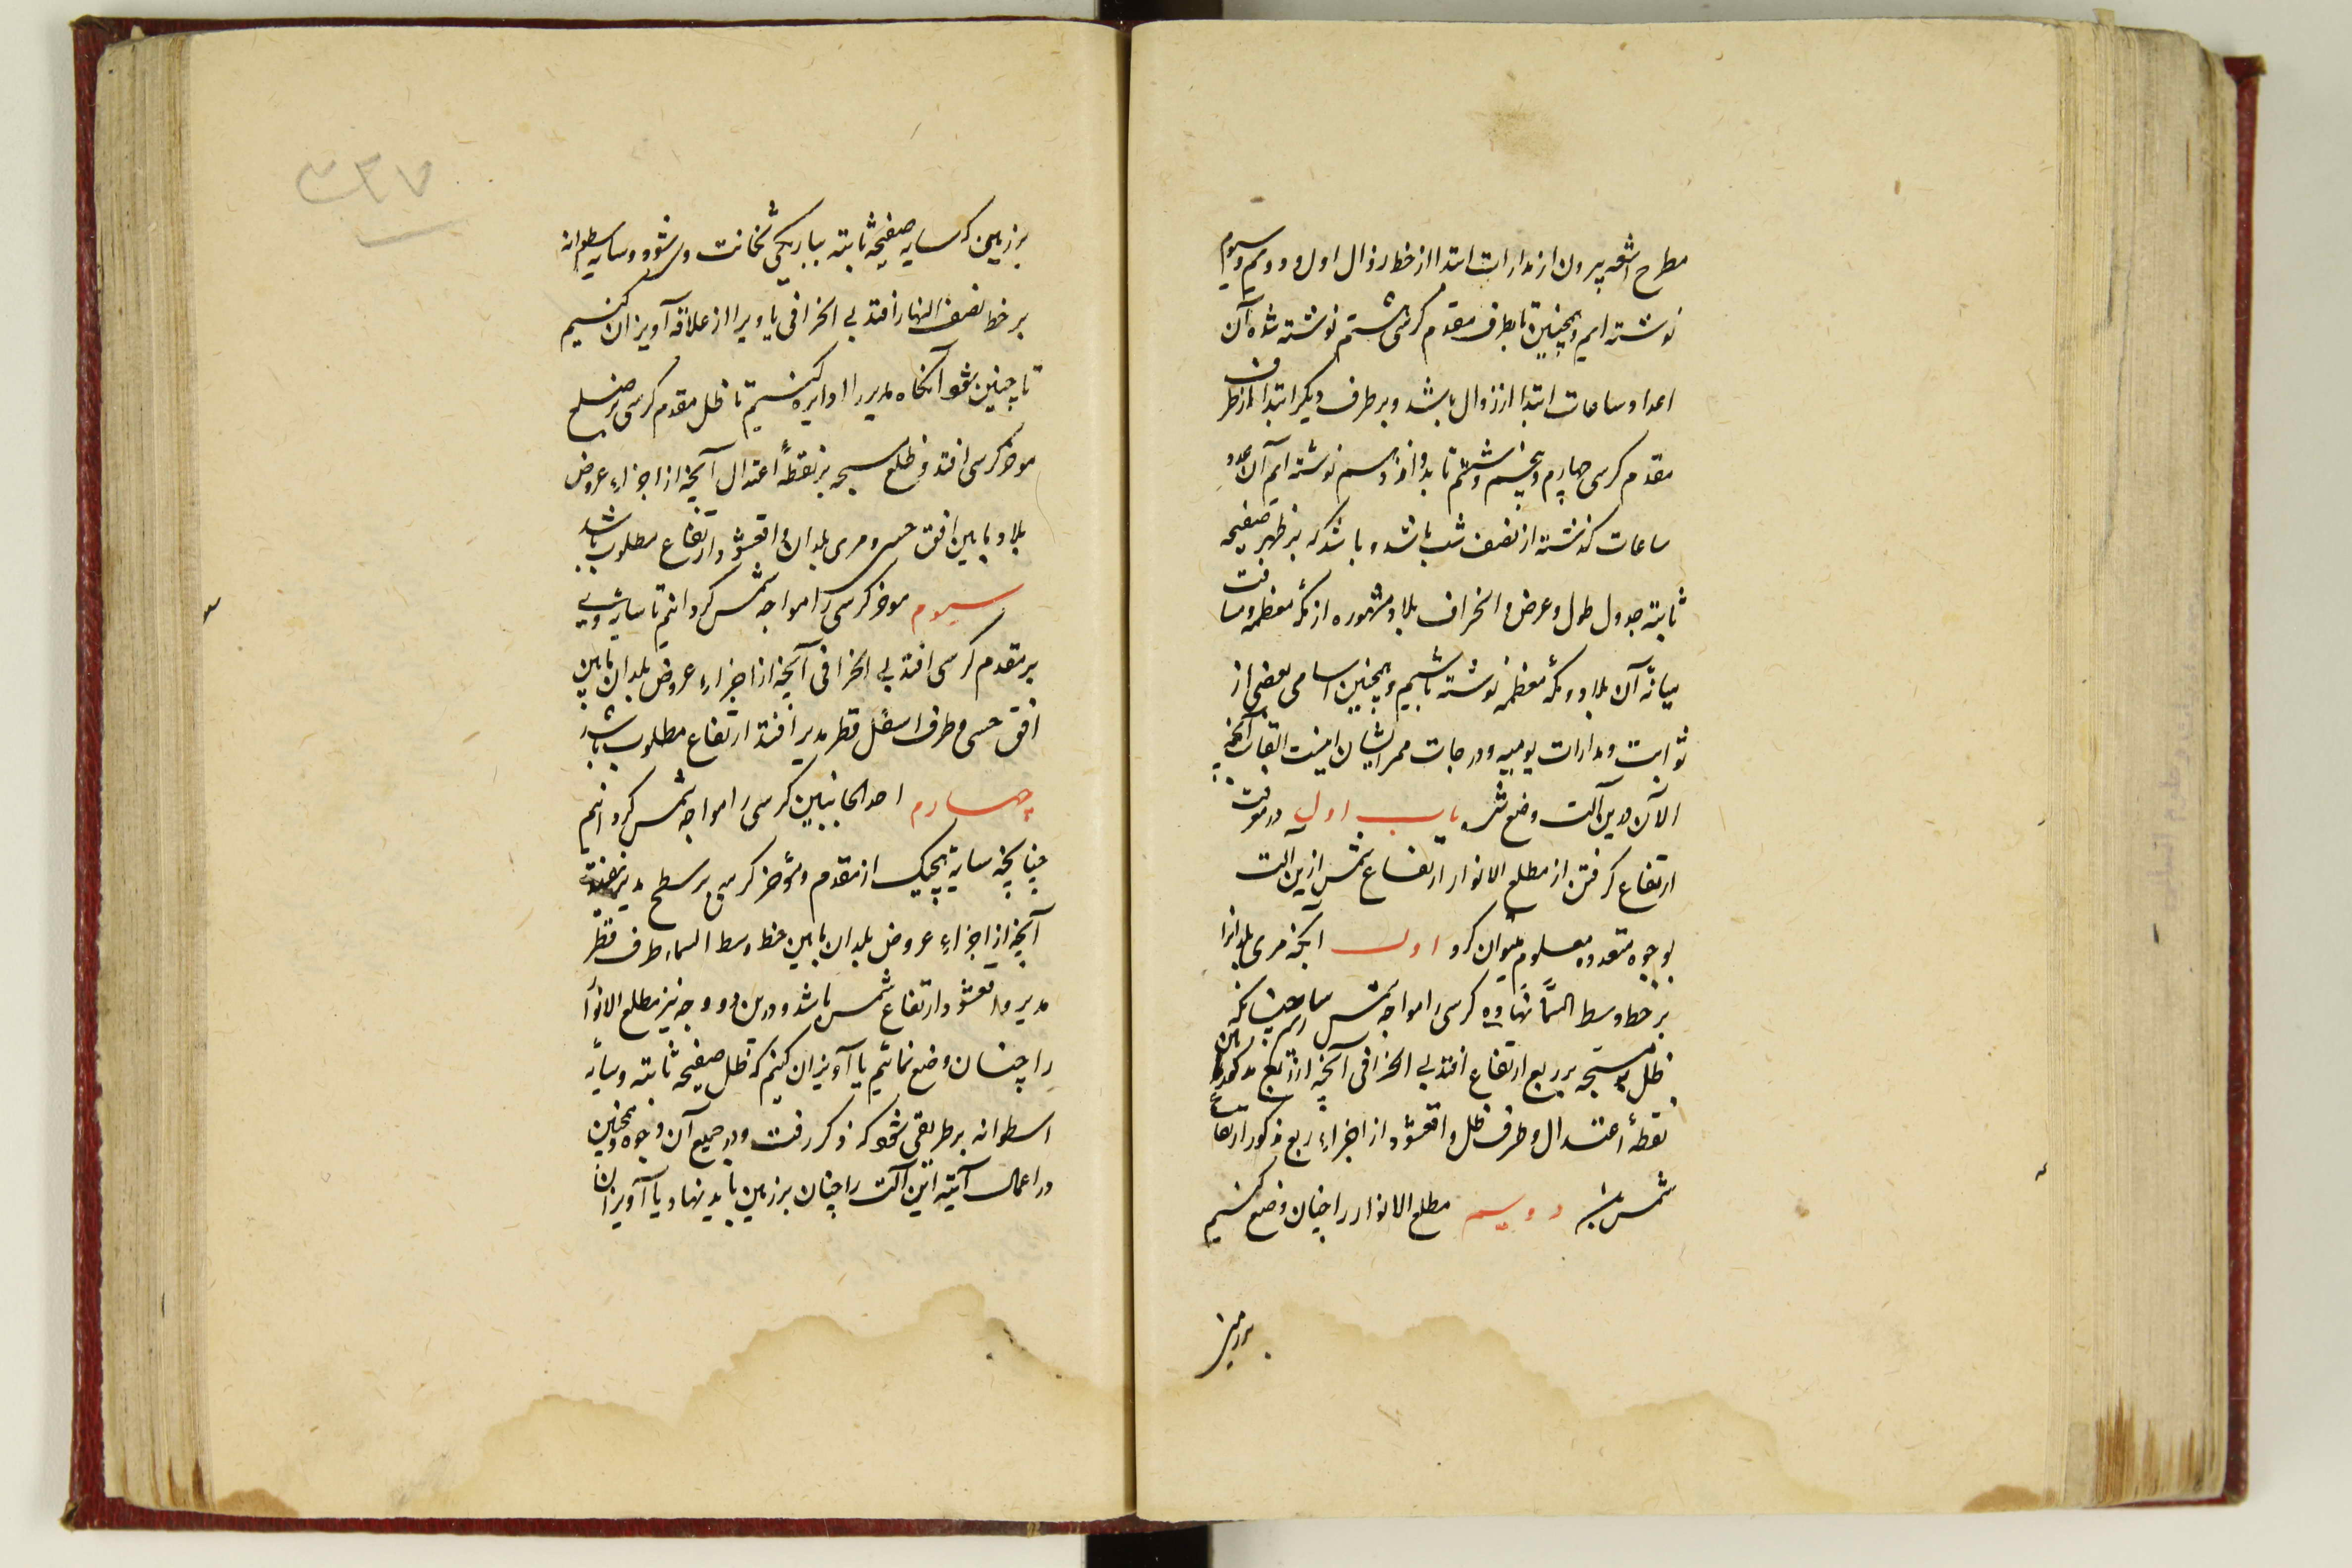 مطرح اشعه بیرون از مدارات ابتدا از خط زوال اول و دویم و سیوم
نوشته ایم و همچنین تا بطرف مقدم کرسی ششم نوشته شده آن
اعداد ساعات ابتدا از زوال باشد و بر طرف دیگر ابتدا از طرف
مقدم کرسی چهارم و پنجم و ششم تا بدوازدهم نوشته ایم آن عدد
ساعات گذشته از نصف شب باشد و باشد که بر ظهر صفیحه
ثابته جدول طول و عرض و انحراف بلاد مشهوره از مکه معظمه و مسافت
میانه آن بلاد و مکه معظمه نوشته باشیم و همچنین اسامی بعضی از
ثوابت و مدارات یومیه و درجات ممر ایشان اینست القاب آنچه
الآن درین آلت وضع شد باب اول در معرفت
ارتفاع گرفتن از مطلع الانوار ارتفاع شمس ازین آلت
بوجوه متعدده معلوم میتوان کرد اول آنکه مری بلدانرا
بر خط وسط السما نهاده کرسی را مواجه شمس سازیم چنانکه
ظل مسبحه بر ربع ارتفاع افتد بی انحرافی آنچه از ربع مذکور مابین
نقطه اعتدال و طرف ظل واقع شود از اجزاء ربع مذکور ارتفاع
شمس باشد دویم مطلع الانوار را چنان وضع کنیم
بر زمین
۳۲۷
بر زمین که سایه صفیحه ثابته بباریکی ثخانت وی شود و سایه اسطوانه
بر خط نصف النهار افتد بی انحرافی یا ویرا از علاقه آویزان کنیم
تا چنین شود آنگاه مدیر را دایره کنیم تا ظل مقدم کرسی بر ضلع
موخر کرسی افتد و ظلع مسبحه بر نقطهٔ اعتدال آنچه از اجزاء عروض
بلاد مابین افق حسی و مری بلدان واقع شود ارتفاع مطلوب باشد
سیوم موخر کرسی را مواجه شمس گردانیم تا سایه وی
بر مقدم کرسی افتد بی انحرافی آنچه از اجزاء عروض بلدان مابین
افق حسی و طرف اسفل قطر مدیر افتد ارتفاع مطلوب باشد
چهارم احد الجانبین کرسی را مواجه شمس گردانیم
چنانچه سایهٔ هیچیک از مقدم و مؤخر کرسی بر سطح مدیر نیفتد
آنچه از اجزاء عروض بلدان مابین خط وسط السما و طرف قطر
مدیر واقع شود ارتفاع شمس باشد و درین دو وجه نیز مطلع الانوار
را چنان وضع نمائیم یا آویزان کنیم که ظل صفیحه ثابته و سایه
اسطوانه بر طریقی شود که ذکر رفت و در جمیع آن وجوه و همچنین
در اعمال آتیه این آلت را چنان بر زمین باید نهاد یا آویزان